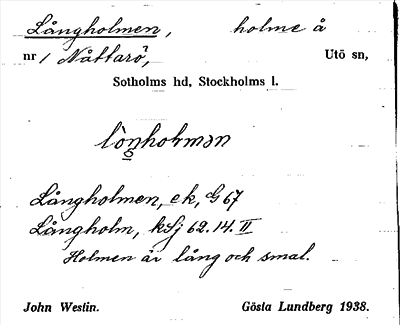 Långholmen, holme å
nr 1 Nåttarö, Utö sn,
Sotholms hd, Stockholms l.
lòŋholmən
Långholmen, ek, G 67
Långholm, ksj 62.14.II
Holmen är lång och smal.
John Westin. Gösta Lundberg 1938.